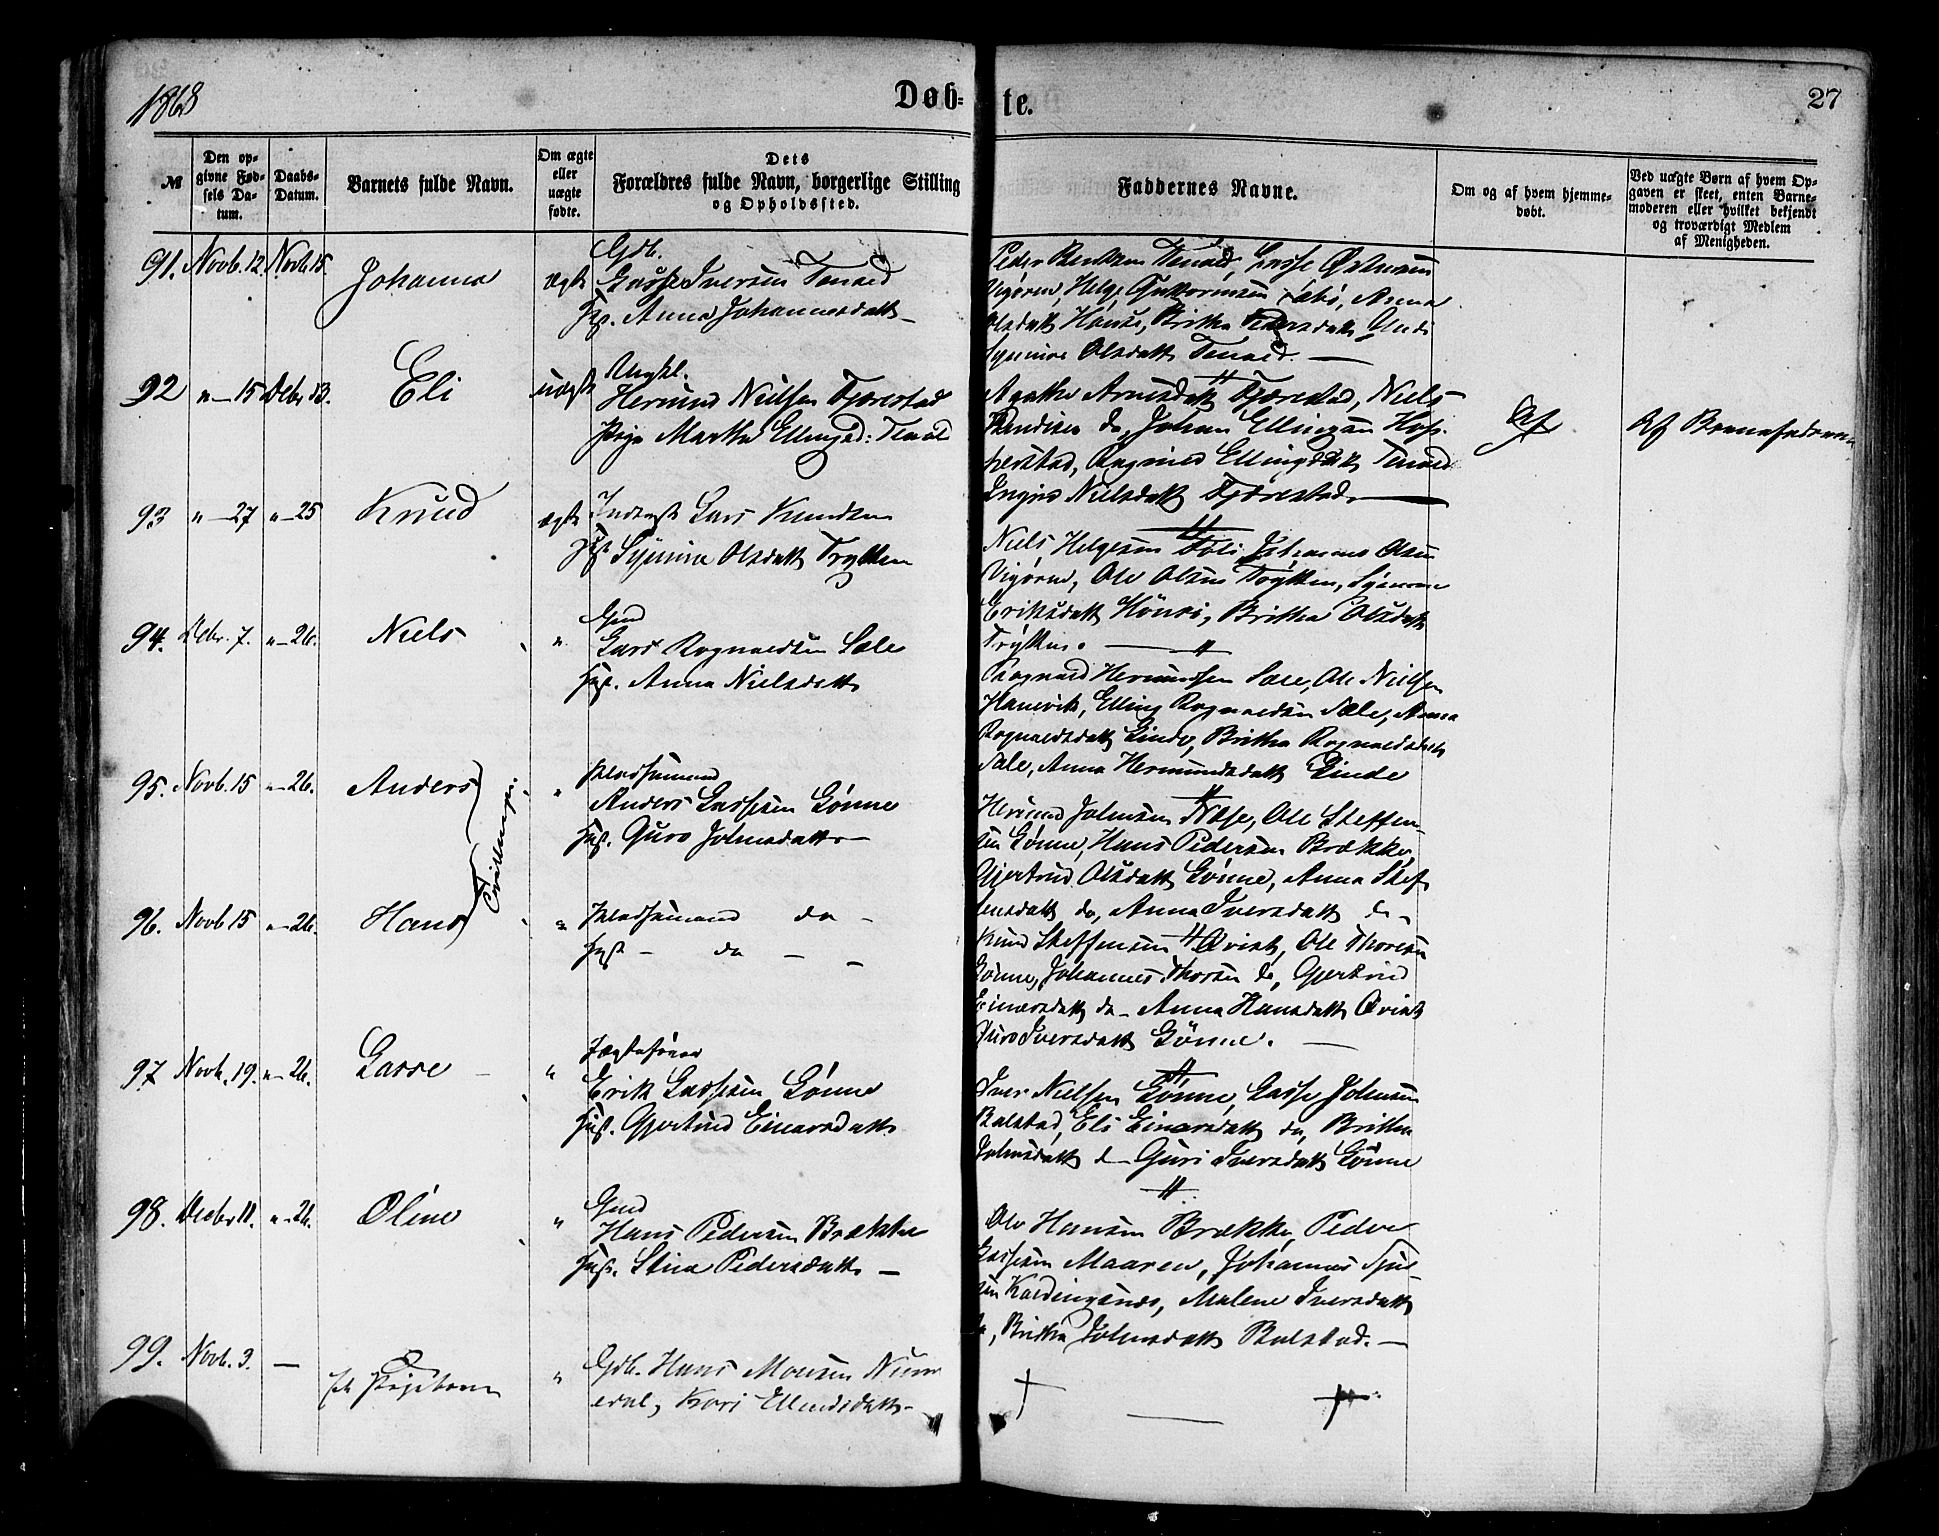 1868
Døb-
te.
27
№
Den op-
givne Fød-
sels Da-
tum.
Daabs-
Datum.
Barnets fulde Navn.
Om ægte
eller
uægte
fødte.
Dets
Forældres fulde Navn, borgerlige Stilling
og Opholdssted.
Faddernes Navne.
Om og af hvem hjemme-
døbt.
Ved uægte Børn af hvem Op-
gaven er skeet, enten Barne-
moderen eller hvilket bekjendt
og troværdigt Medlem
af Menigheden.
91. Novb. 12. Novb. 15.
Johanna
ægte
Gdb.
Lasse Iversen Tenold
Hst. Anna Johannesdatt
Lasse
Vigøren, Helge Guttormsen Føli, Anna
Olsdatt Hønsi, Britha Pedersdatt
Synneve Olsdatt Tenold.
92 " 15 Debr 13.
Eli
uægte
Ungkl.
Hermund Nielsen Fjærestad
Pige Martha Ellingsd: Tenold
Agathe Arnesdatt Fjærestad, Niels
do, Johan Ellingsen Hop-
perstad, Ragnild Ellingsdatt Tenold
Nielsdatt Fjærestad
Af
Af Barnefaderen
93 " 27 " 25
Knud
ægte
Inderst Lars Knudsen
Hst Synneva Olsdatt Trytten
Niels Helgesen Føli, Johannes Olsen
Vigøren, Ole Olsen Trytten, Synneve
Eriksdatt Hønsi, Britha Olsdatt
Trytten.
94. Debr. 7. " 26.
Niels
"
Gmd
Lars Rognaldsen Sæle
Hst. Anna Nielsdatt
Rognald Hermundsen Sæle, Ole Nielsen
Hamvik, Elling Rognaldsen Sæle, Anna
Rognaldsdatt Linde, Britha Rognaldsdatt
Sæle, Anna Hermundsdatt Linde
95. Novb. 15 " 26.
Anders
Tvillinger
"
Pladsmand
Anders Lassesen Gønne
Hst. Guro Johnsdatt
Hermund Johnsen Næse, Ole Steffen-
sen Gønne, Hans Pedersen Brække,
Gjertrud Olsdatt Gønne, Anna Stef-
fensdatt do, Anna Iversdatt do
96. Novb 15 " 26.
Hans
"
Pladsmand do
Hst do
Knud Steffensen Qvist, Ole Thoresen
Gønne, Johannes Thorsen do, Gjertrud
Einarsdatt do Anna Hansdatt Qvist
Guro Iversdatt Gønne.
97 Novb. 19. " 26.
Lasse
"
Erik Lassesen Gønne
Hst. Gjertrud Einarsdatt
Iver Nielsen Gønne, Lasse Johnsen
Balstad, Eli Einarsdatt do, Britha
Johnsdatt do Guri Iversdatt Gønne
98. Decbr 11. " 26.
Oline
"
Gmd
Hans Pedersen Brække
Hst. Stina Pedersdatt
Ole Hansen Brække, Peder
Lassesen Maaren, Johannes
Malene Iversdatt
do, Britha Johnsdatt Balstad.
99. Novb. 3. —
Pigebarn
"
Gdb. Hans Monsen Num-
edal, Kari Ellendsdatt